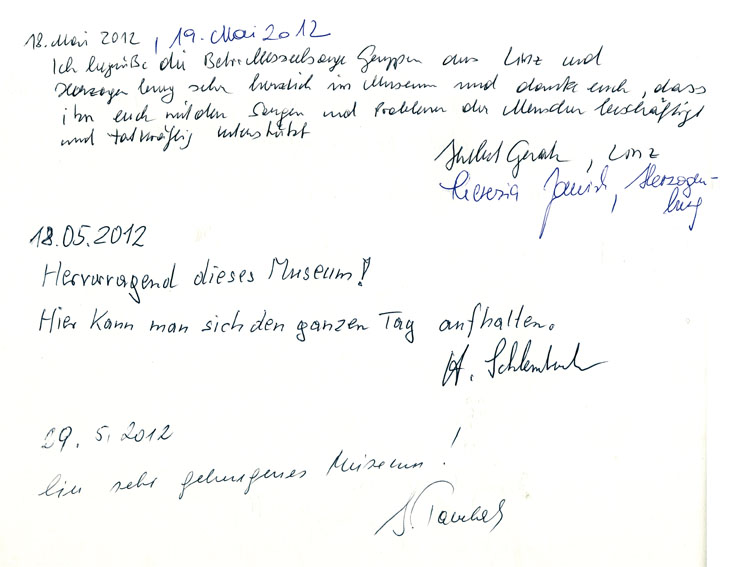 18. Mai 2012, 19. Mai 2012
Ich begrüße die Betriebsseelsorge Gruppen aus Linz und
Herzogenburg sehr herzlich im Museum und danke euch, dass
ihr euch mit den Sorgen und Problemen der Menschen beschäftigt
und tatkräftig unterstützt
, Linz
Theresia Janisch, Herzogen-
burg
18.05.2012
Hervorragend dieses Museum!
Hier kann man sich den ganzen Tag aufhalten.
A.
29. 5. 2012
Ein sehr gelungenes Museum!